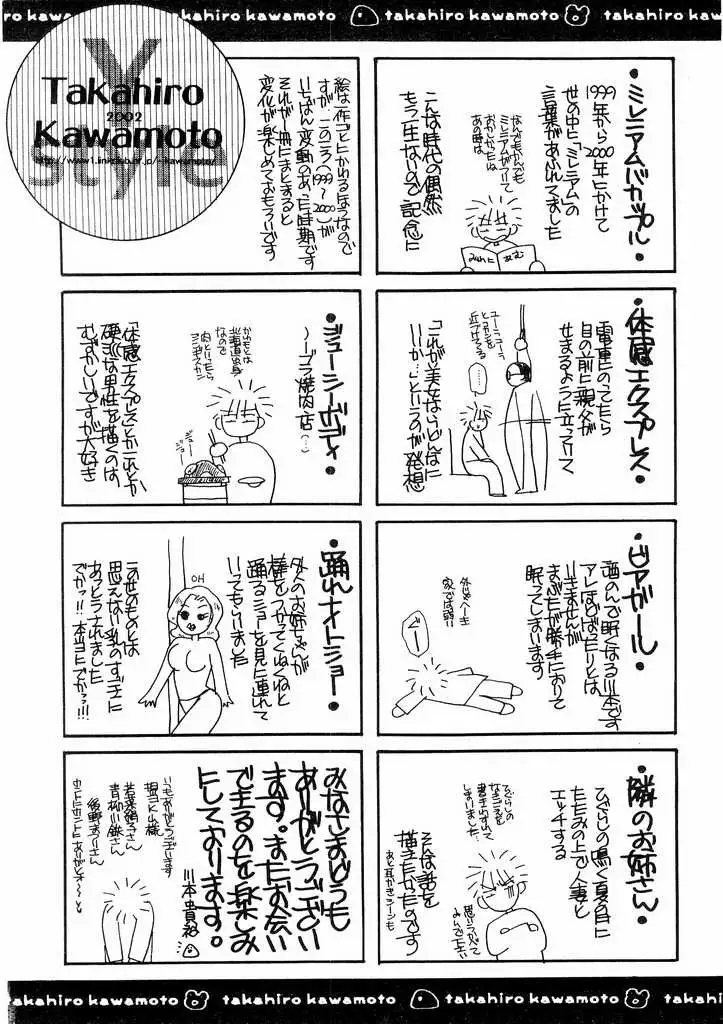 takahiro kawamoto
takahiro kawamoto
takahiro kawamoto
Y style
Takahiro
2002
Kawamoto
・ミレニアムバカップル・
1999年から2000年にかけて
世の中に「ミレニアム」の
言葉があふれてました
なんでもかんでも
ミレニアムがついて
おかしかったね
あの時は
こんな時代の偶然
もう一生ないので記念に
みれに
あむ
絵は一作ごとにかわるほうなので
すが、このころ(1999〜2000)が
いちばん変動のあった時期です
それが一冊にまとまると
変化が楽しめておもろいです
・体感エクスプレス・
電車にのってたら
目の前に親父が
せまるように立ってけて
ユーラユーラ
とコカンを
近づけてくる
「これが美女ならどんなに
いいか…」というのが発想
・ジューシーボディ・
〜ノーブラ焼肉店〜
かわもとは
北海道出身
なので
肉といったら
ジンギスカン
「体感エクスプレス」とかこれとか
硬派な男性を描くのは
むずかしいですが大好き
・ビアガール・
酒のんで眠くなる川本です
アレはばったりとは
いきませんが
まぶたが勝手におりて
眠ってしまいます
外じゃへーき
家では弱い
ぐー
・踊れナイトショー・
外人のお姉ちゃんが
棒をつかってくねくねと
踊るショーを見に連れて
いってもらいました
OH
この世のものとは
思えない乳のすごさに
あっとうされました
でかっ!!本当にでかっ!!!
・隣のお姉さん・
ひぐらしの鳴く夏の日に
たたみの上で人妻と
エッチする
ひぐらしの
なきごえを
書きわすれて
しまいました
そんな話を
描きたかったのです
あと耳かきシーンも
思いうかべて
よんで下さい
みなさまどうも
ありがとうござい
ます。またお会い
できるのを楽しみ
にしております。
川本貴裕
いつもありがとうございます
青柳小鉄さん
後野まつりさん
ホントにホントにありがとネ〜
takahiro kawamoto
takahiro kawamoto
takahiro kawamoto